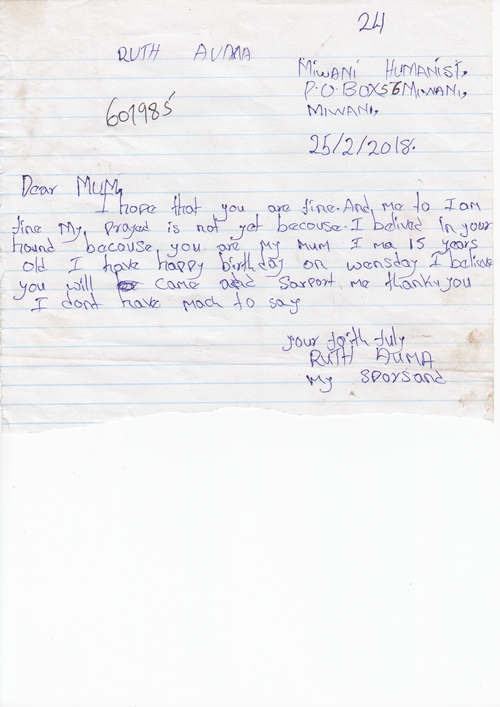 24
RUTH AUMA
MIWANI HUMANIST,
P.O.BOX 56 MIWANI,
601985
MIWANI,
25/2/2018.
Dear MUM,
I hope that you are fine. And me to I am
fine My prayed is not yet becouse. I belived in your
hound becouse you are my mum I ma 15 years
old I have happy birthday on wensday I believe
you will came and Sarport me thank you
I dont have mach to say
your faith fuly
RUTH AUMA
My SPorsand